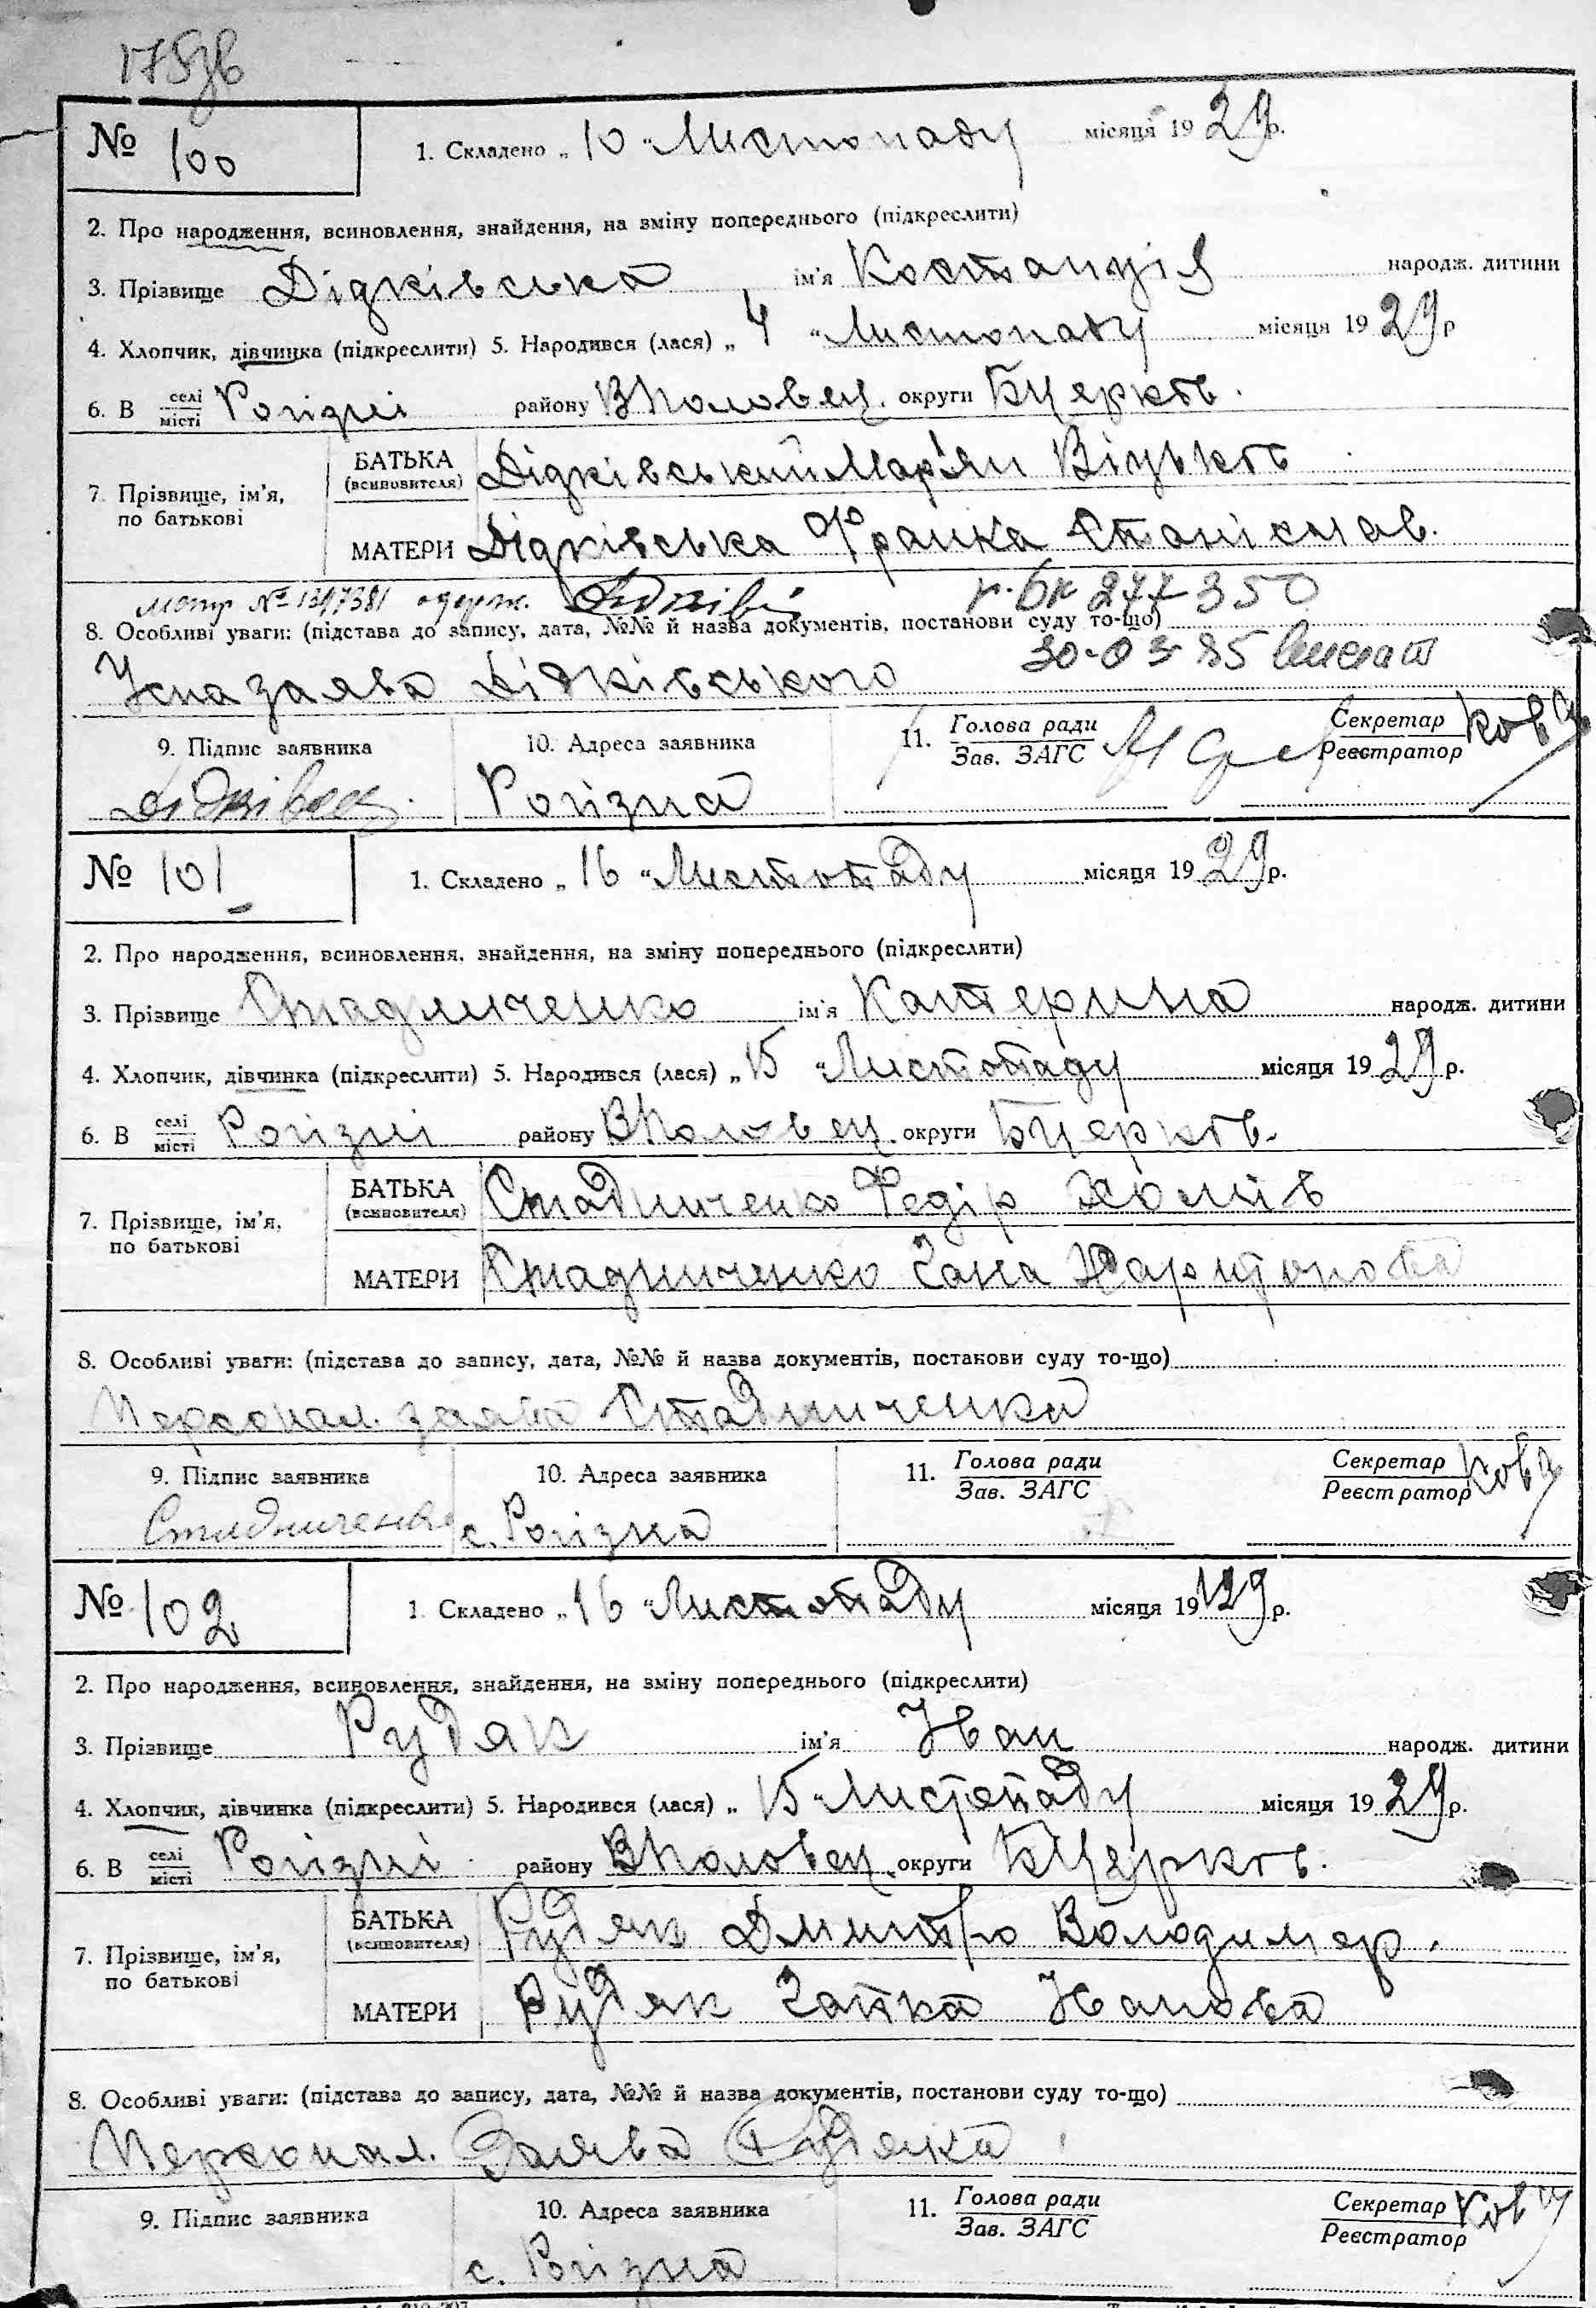 № 100
1. Складено „ 10 “ Листопаду місяця 1929р.
2. Про народження, всиновлення, знайдення, на зміну попереднього (підкреслити)
3. Прізвище Дідківська ім'я Костанція народж. дитини
4. Хлопчик, дівчинка (підкреслити) 5. Народився (лася) „ 4 “ Листопаду місяця 1929р
6. В селі місті Рогізні району Вполовец. округи БЦерків.
7. Прізвище, ім'я, по батькові
БАТЬКА (всиновителя) Дідківський Мар'ян Віцьків
МАТЕРИ Дідківська Франка Станіслав.
8. Особливі уваги: (підстава до запису, дата, №№ й назва документів, постанови суду то-що)
Усна заява Дідківського
9. Підпис заявника
10. Адреса заявника
11. Голова ради Зав. ЗАГС
Секретар Реєстратор
Рогізна
№ 101
1. Складено „ 16 “ Листопаду місяця 1929р.
2. Про народження, всиновлення, знайдення, на зміну попереднього (підкреслити)
3. Прізвище Стадниченко ім'я Катерина народж. дитини
4. Хлопчик, дівчинка (підкреслити) 5. Народився (лася) „ 15 “ Листопаду місяця 1929р.
6. В селі місті Рогізні району Вполовец. округи БЦерків.
7. Прізвище, ім'я, по батькові
БАТЬКА (всиновителя) Стадниченко Федір Хомів
МАТЕРИ Стадниченко Ганна Харитонова
8. Особливі уваги: (підстава до запису, дата, №№ й назва документів, постанови суду то-що)
Персонал. заява Стадниченка
9. Підпис заявника
10. Адреса заявника
11. Голова ради Зав. ЗАГС
Секретар Реєстратор
Стадниченко с. Рогізна
№ 102
1. Складено „ 16 “ Листопаду місяця 1929р.
2. Про народження, всиновлення, знайдення, на зміну попереднього (підкреслити)
3. Прізвище Рудяк ім'я Іван народж. дитини
4. Хлопчик, дівчинка (підкреслити) 5. Народився (лася) „ 15 “ Листопаду місяця 1929р.
6. В селі місті Рогізні району Вполовец. округи БЦерків.
7. Прізвище, ім'я, по батькові
БАТЬКА (всиновителя) Рудяк Дмитро Володимер.
МАТЕРИ Рудяк Гапка Іванова
8. Особливі уваги: (підстава до запису, дата, №№ й назва документів, постанови суду то-що)
Персонал. Заява Рудяка
9. Підпис заявника
10. Адреса заявника
11. Голова ради Зав. ЗАГС
Секретар Реєстратор
с. Рогізна